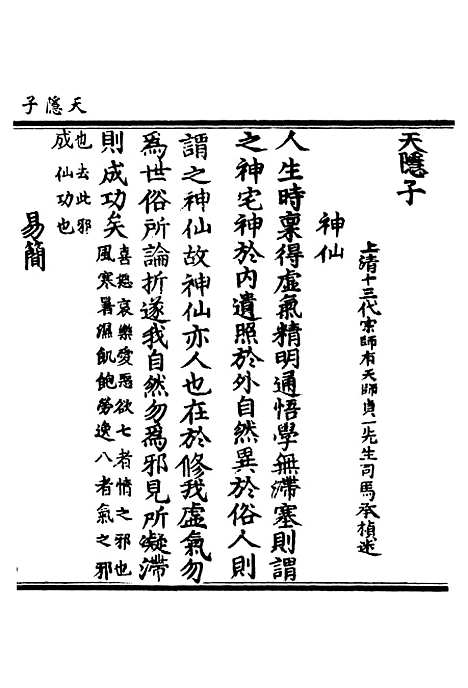 天隱子
天隱子
上清十三代宗師有天師貞一先生司馬承楨述
神仙
人生時稟得虛氣精明通悟學無滯塞則謂
之神宅神於內遺照於外自然異於俗人則
謂之神仙故神仙亦人也在於修我虛氣勿
為世俗所論折遂我自然勿為邪見所凝滯
則成功矣喜怒哀樂愛惡欲七者情之邪也
風寒暑濕飢飽勞逸八者氣之邪
也去此邪
成仙功也
易簡